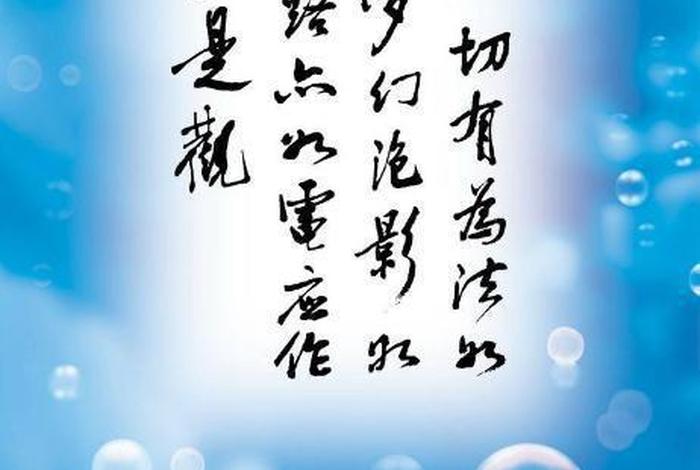 切有為法如
夢幻泡影如
露亦如電应作
是觀